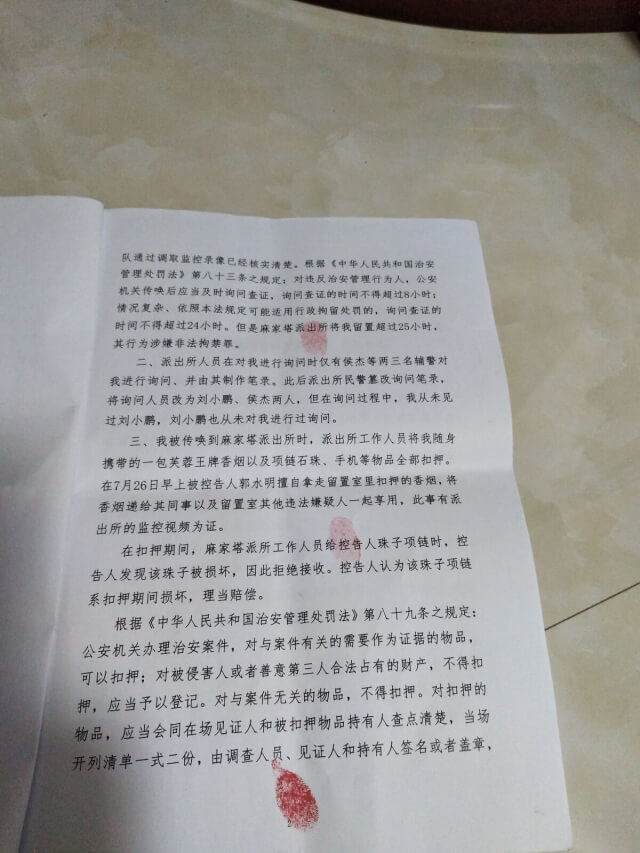 队通过调取监控录像已经核实清楚。根据《中华人民共和国治安
管理处罚法》第八十三条之规定：对违反治安管理行为人，公安
机关传唤后应当及时询问查证，询问查证的时间不得超过8小时；
情况复杂、依照本法规定可能适用行政拘留处罚的，询问查证的
时间不得超过24小时。但是麻家塔派出所将我留置超过25小时，
其行为涉嫌非法拘禁罪。
二、派出所人员在对我进行询问时仅有侯杰等两三名辅警对
我进行询问、并由其制作笔录。此后派出所民警篡改询问笔录，
将询问人员改为刘小鹏、侯杰两人，但在询问过程中，我从未见
过刘小鹏，刘小鹏也从未对我进行过询问。
三、我被传唤到麻家塔派出所时，派出所工作人员将我随身
携带的一包芙蓉王牌香烟以及项链石珠、手机等物品全部扣押。
在7月26日早上被控告人郭水明擅自拿走留置室里扣押的香烟，将
香烟递给其同事以及留置室其他违法嫌疑人一起享用，此事有派
出所的监控视频为证。
在扣押期间，麻家塔派所工作人员给控告人珠子项链时，控
告人发现该珠子被损坏，因此拒绝接收。控告人认为该珠子项链
系扣押期间损坏，理当赔偿。
根据《中华人民共和国治安管理处罚法》第八十九条之规定：
公安机关办理治安案件，对与案件有关的需要作为证据的物品，
可以扣押；对被侵害人或者善意第三人合法占有的财产，不得扣
押，应当予以登记。对与案件无关的物品，不得扣押。对扣押的
物品，应当会同在场见证人和被扣押物品持有人查点清楚，当场
开列清单一式二份，由调查人员、见证人和持有人签名或者盖章，
2